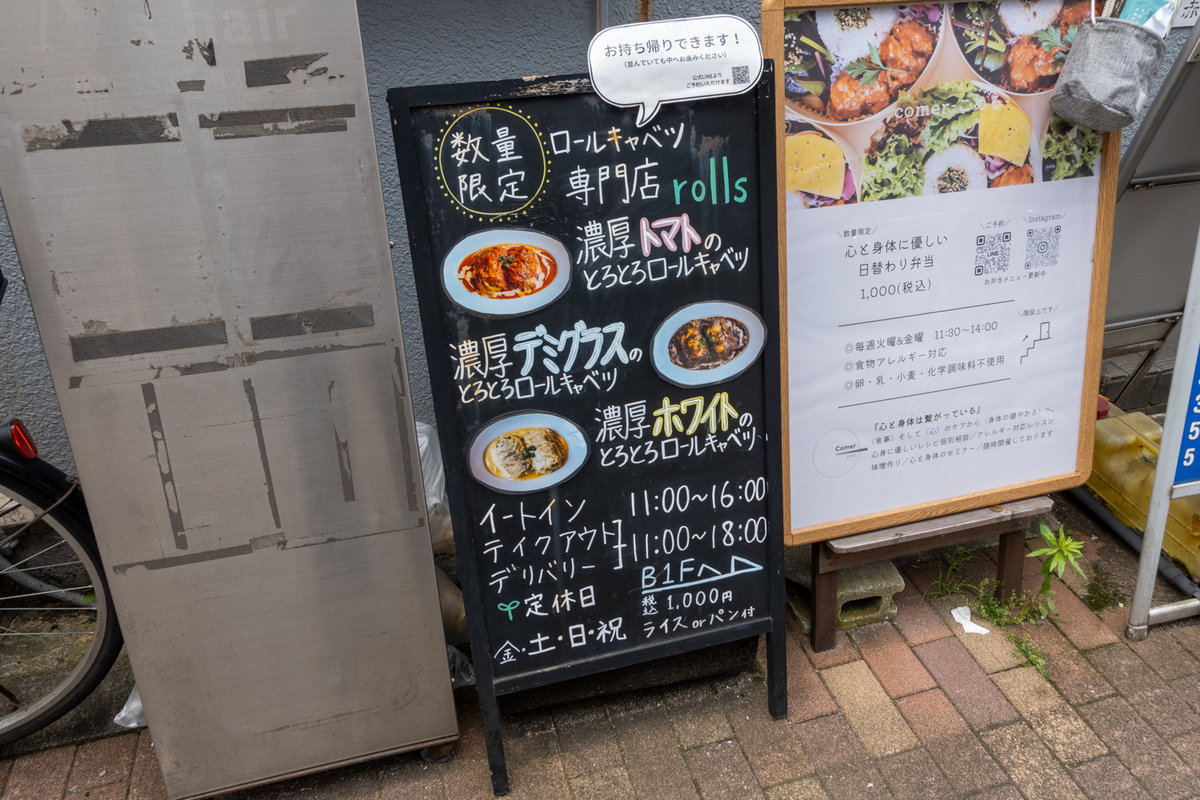 hair
お持ち帰りできます！
(並んでいても中へお進みください)
公式LINEより
ご予約いただけます
数量
限定
ロールキャベツ
専門店 rolls
濃厚トマトの
とろとろロールキャベツ
濃厚デミグラスの
とろとろロールキャベツ
濃厚ホワイトの
とろとろロールキャベツ
イートイン 11:00～16:00
テイクアウト
デリバリー
11:00～18:00
B1Fへ
定休日
金・土・日・祝
税込 1,000円
ライス or パン付
comer
数量限定
心と身体に優しい
日替わり弁当
1,000(税込)
ご予約
LINE
Instagram
お弁当メニュー更新中
◎毎週火曜&金曜 11:30～14:00
◎食物アレルギー対応
◎卵・乳・小麦・化学調味料不使用
階段上です
『心と身体は繋がっている』
〈食事〉そして〈心〉のケアから〈身体の健やかさ〉へ
心身に優しいレシピ個別相談／アレルギー対応レッスン
味噌作り／心と身体のセミナー／随時開催しております
Comer
赤
3
5
5